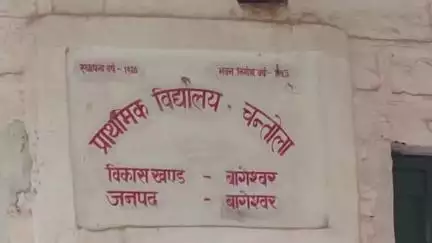 स्थापना वर्ष - भवन निर्माण वर्ष -
प्राथमिक विद्यालय - चन्तोला
विकास खण्ड - बागेश्वर
जनपद - बागेश्वर